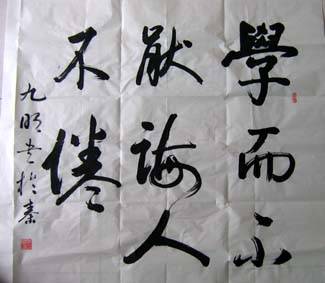 學而不
厭誨人
不倦
九明书於秦